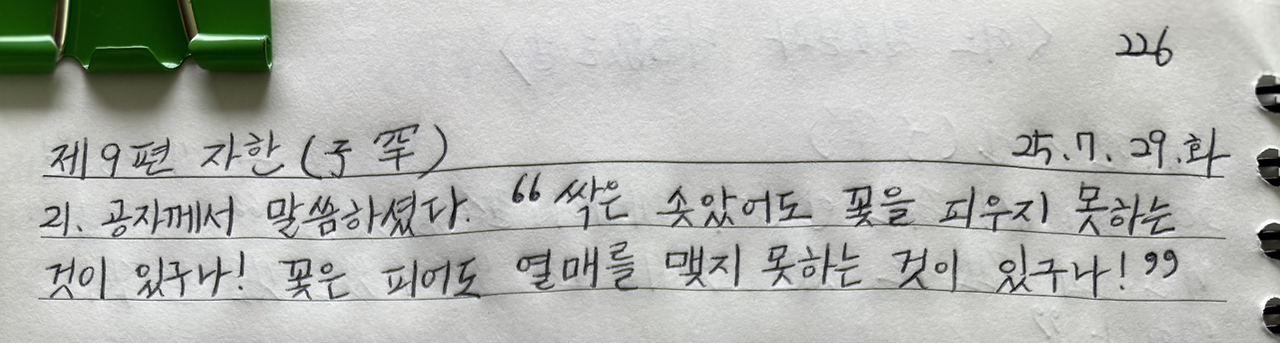 226
제9편 자한(子罕) 25.7.29.화
21. 공자께서 말씀하셨다. "싹은 솟았어도 꽃을 피우지 못하는
것이 있구나! 꽃은 피어도 열매를 맺지 못하는 것이 있구나!"